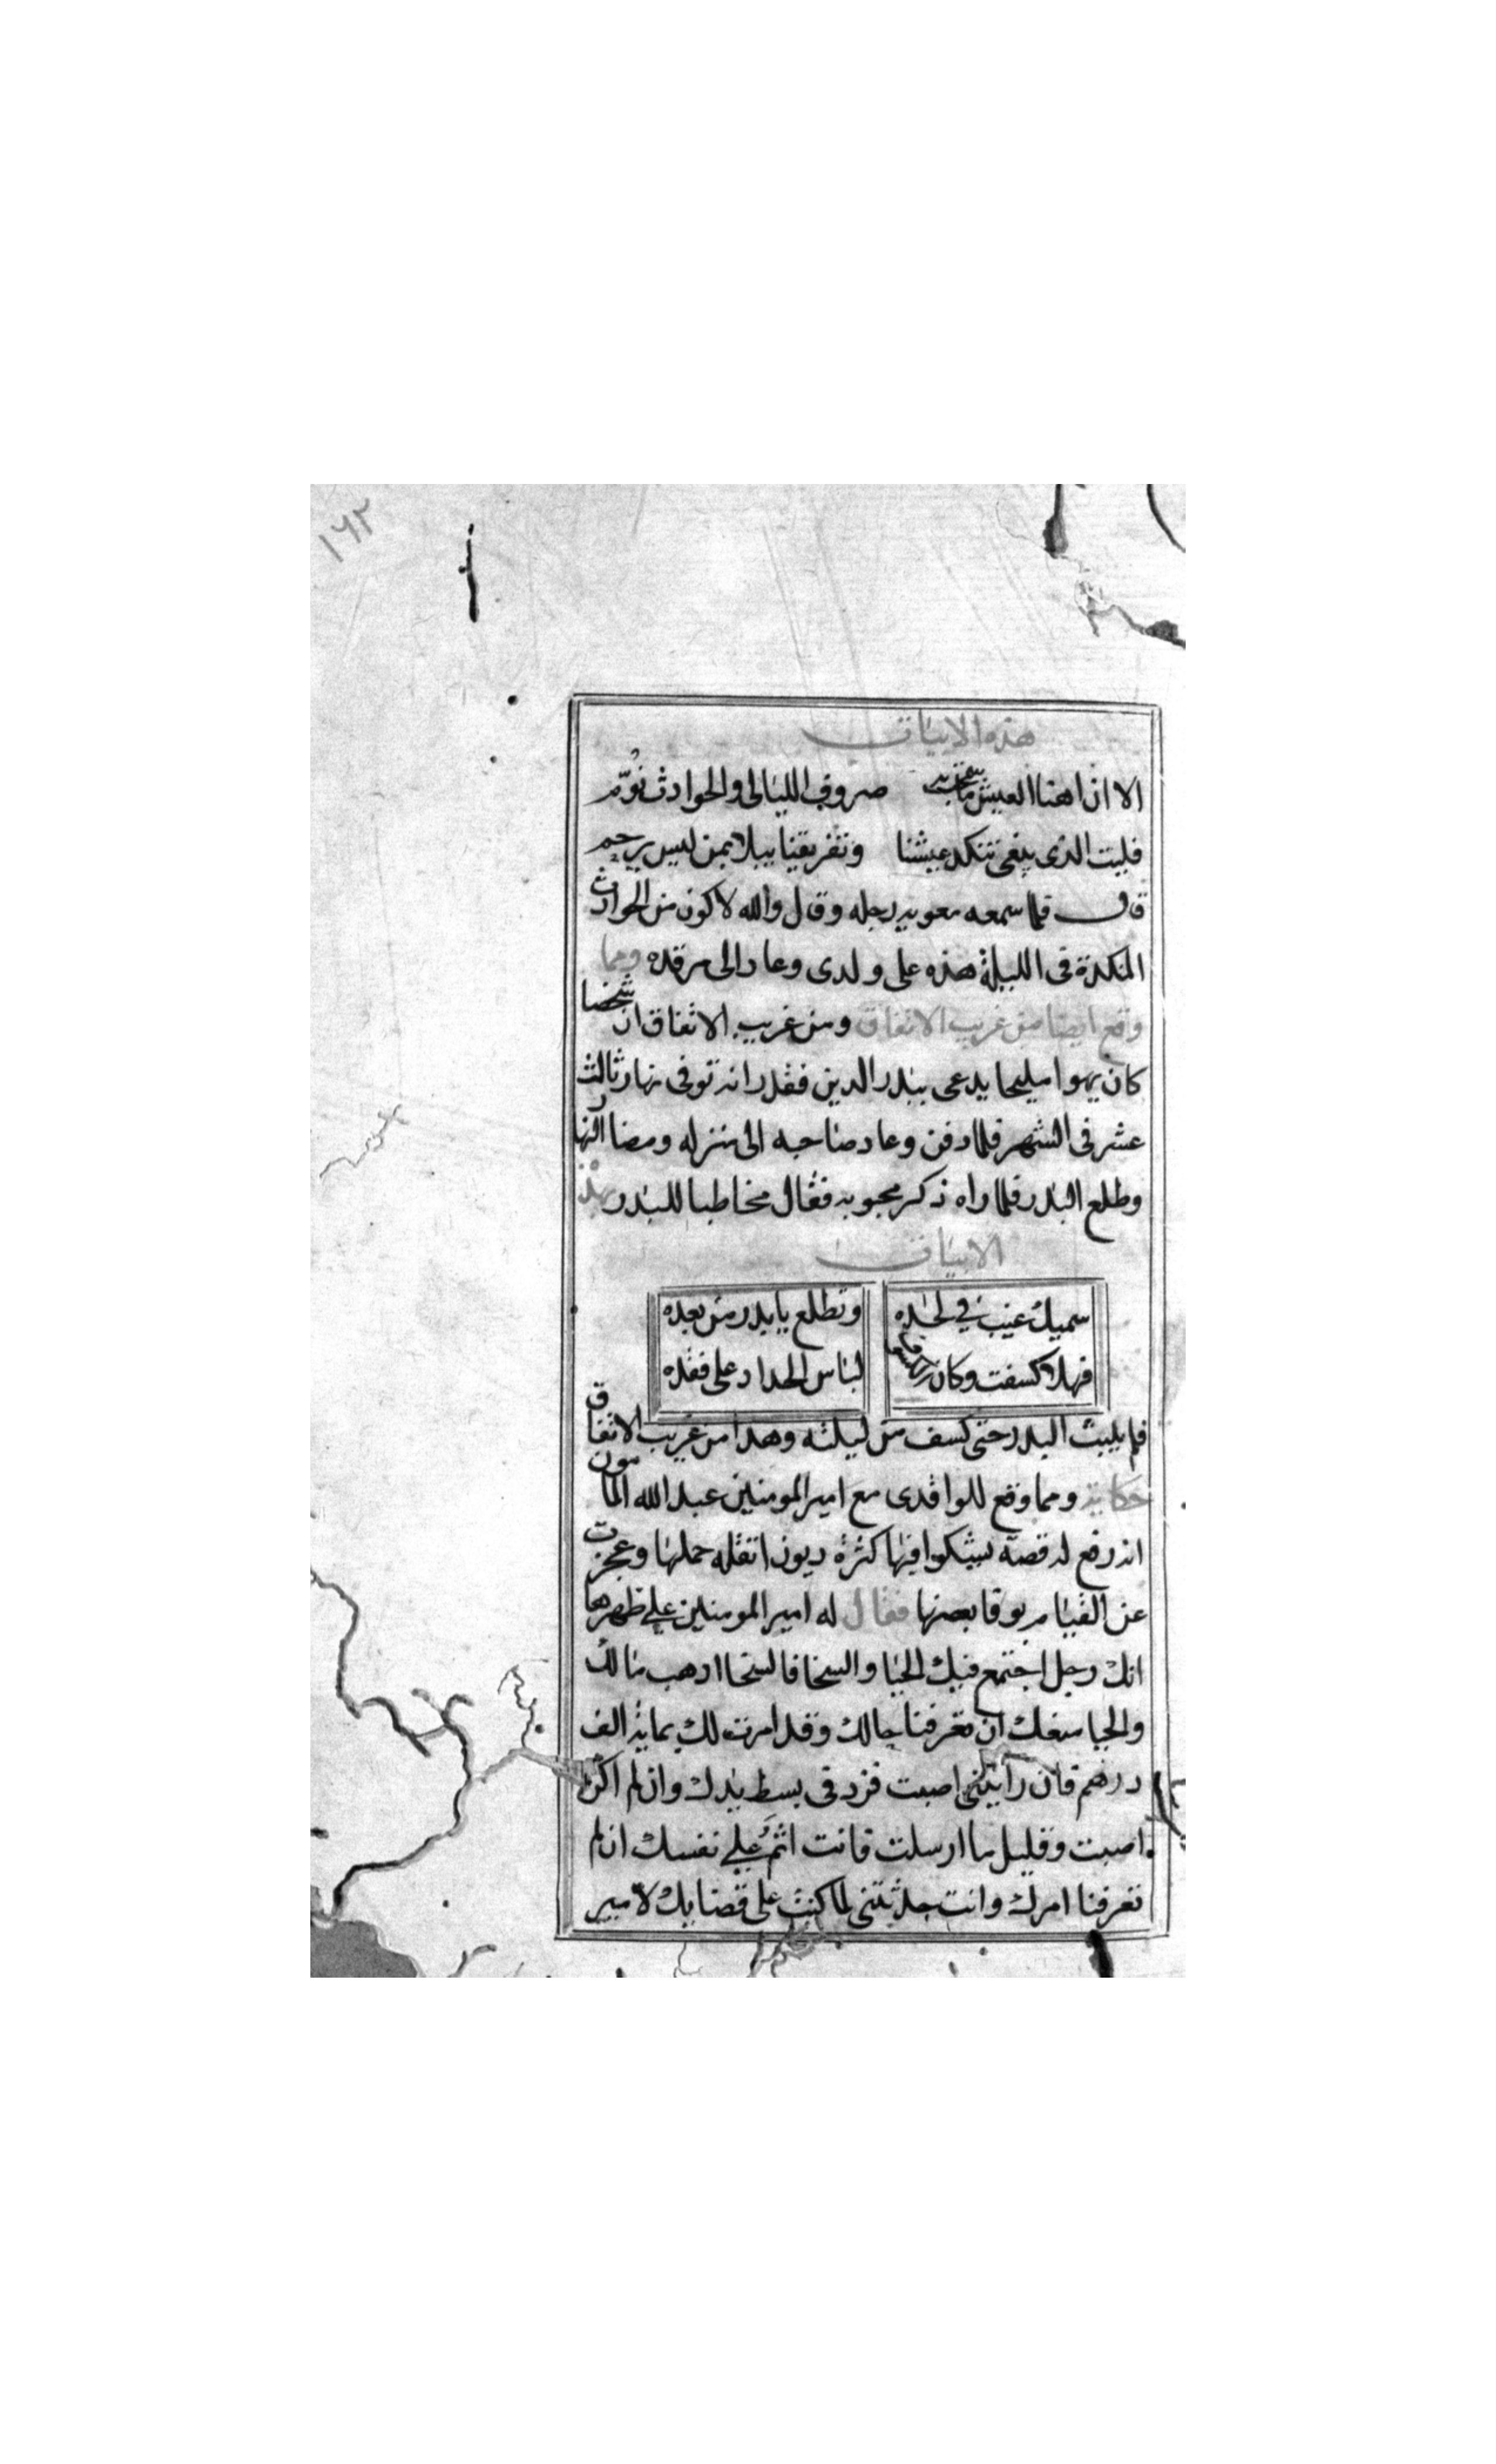 ١٦٢
هذه الابيات
الا ان اهنا العيش ما سمحت به صروف الليالى والحوادث نوّم
فليت الذى يبغى تنكد عيشنا وتفريقنا يبلا بمن ليس يرحم
قال فلما سمعه معويه رجله وقال والله لا كون من الحوادث
المنكدة فى الليلة هذه على ولدى وعاد الى مرقده ومما
وقع ايضا من غريب الاتفاق ومن غريب الاتفاق ان شخصا
كان يهوا مليحا يدعى ببدر الدين فقدر انه توفى نهار ثالث
عشر فى الشهر فلما دفن وعاد صاحبه الى منزله ومضا النهار
وطلع البدر فلما راه ذكر محبوبه فقال مخاطبا للبدر بهذه
الابيات
سميك غيب في لحده وتطلع يا بدر من بعده
فهلا كسفت وكان لباس الحداد على فقده
فلم يلبث البدر حتى كسف من ليلته وهذا من غريب الاتفاق
حكاية ومما وقع للواقدى مع امير المومنين عبد الله المامون
انه رفع له قصة يشكوا فيها كثرة ديون اثقله حملها وعجزت
عن القيام بوفا بعضها فقال له امير المومنين على ظهرها
انك رجل اجتمع فيك الحيا والسخا فالسخا ادهب مالك
والحيا منعك ان تعرفنا حالك وقد امرت لك بماية الف
درهم فان رايتنى اصبت فزد فى بسط يدك وان لم اكن
اصبت وقليل ما ارسلت فانت اثم على نفسك ان لم
تعرفنا امرك وانت حدثتنى لما كنت على قضا بك لامير